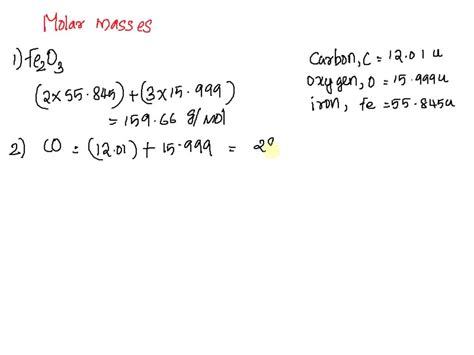 Molar masses
1) Fe2O3
(2x55.845)+(3x15.999)
= 159.66 g/mol
2) CO = (12.01) + 15.999 = 28
Carbon, C = 12.01 u
Oxygen, O = 15.999u
iron, Fe = 55.845u